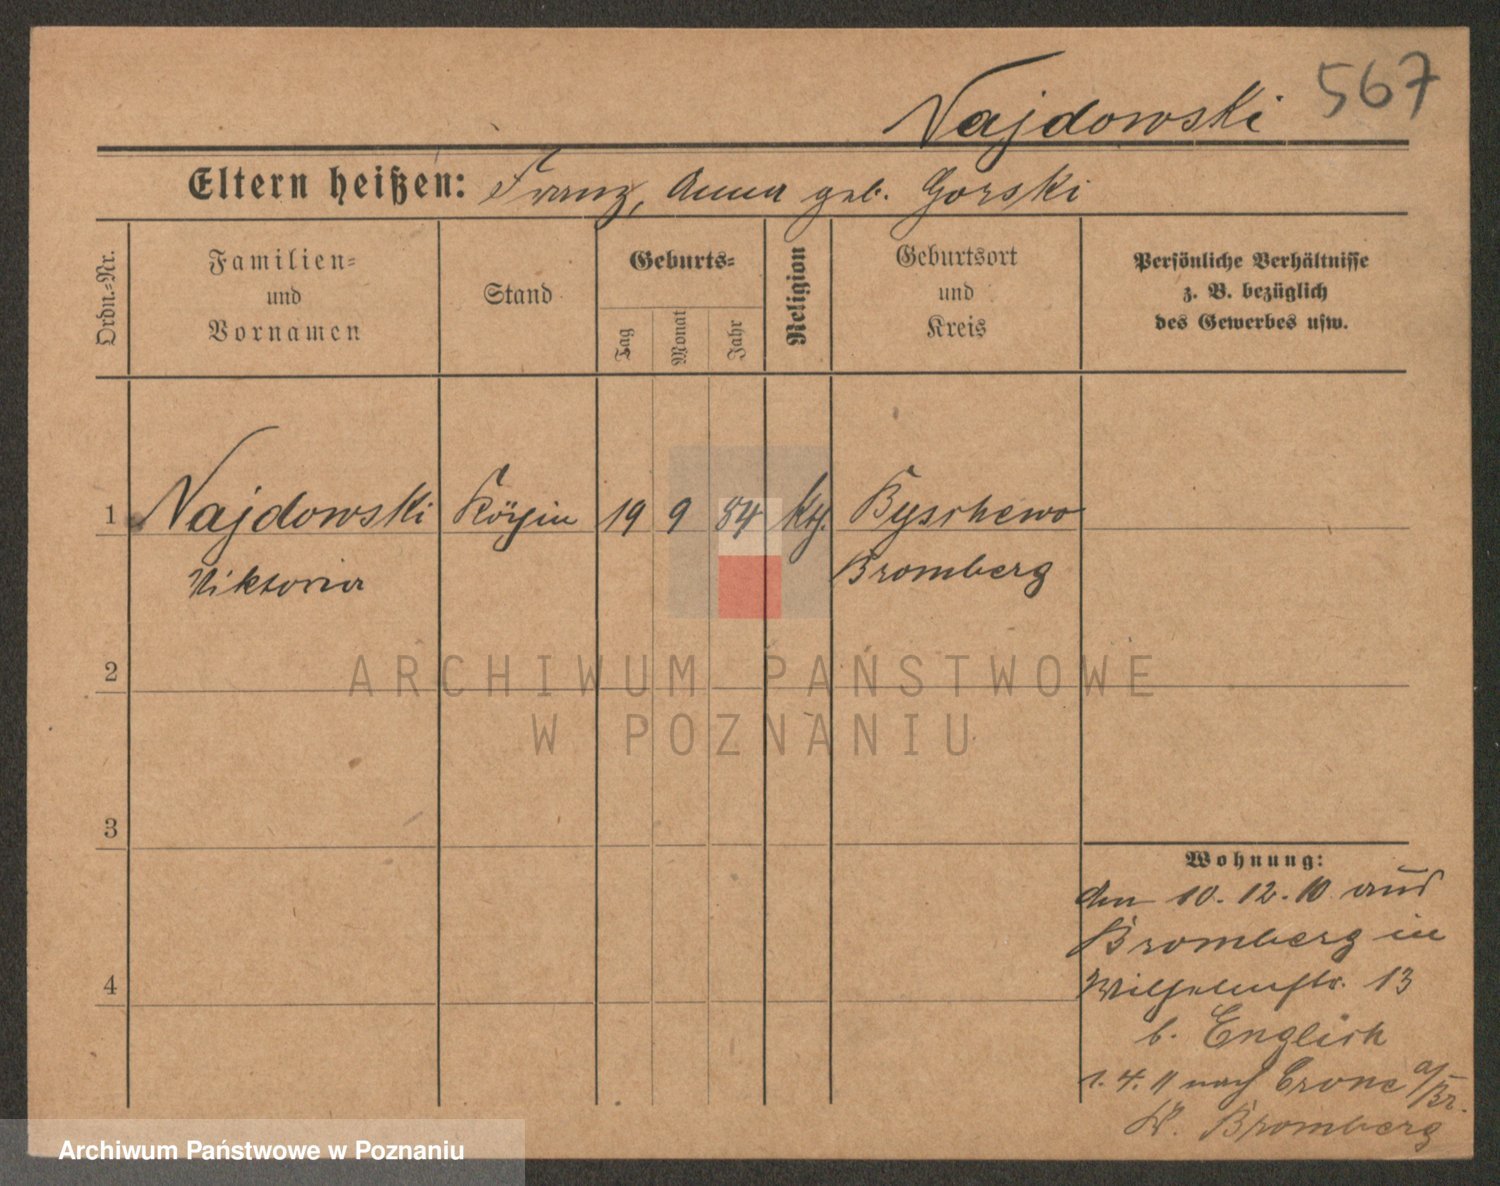 567
Najdowski
Eltern heißen: Franz, Anna geb. Gorski
Ordn.-Nr.
Familien-
und
Vornamen
Stand
Geburts-
Tag
Monat
Jahr
Religion
Geburtsort
und
Kreis
Persönliche Verhältnisse
z. B. bezüglich
des Gewerbes usw.
1 Najdowski Köchin 19 9 84 kth. Byschewo
Viktoria Bromberg
2
3
4
Wohnung:
den 10. 12. 10 aus
Bromberg in
Wilhelmstr. 13
b. Englisch
1. 4. 11 nach Crone a/Br.
K. Bromberg
ARCHIWUM PAŃSTWOWE
W POZNANIU
Archiwum Państwowe w Poznaniu